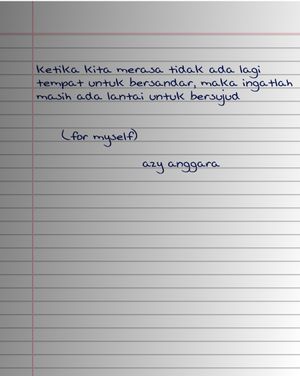 ketika kita merasa tidak ada lagi
tempat untuk bersandar, maka ingatlah
masih ada lantai untuk bersujud
(for myself)
azy anggara